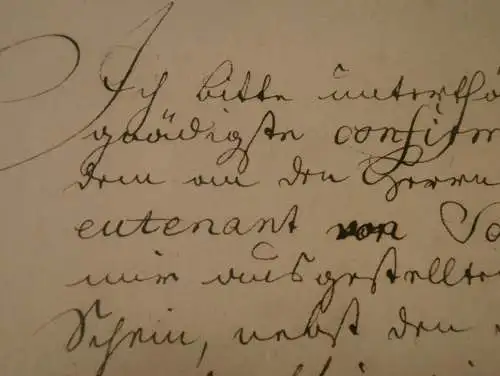 Ich bitte unterthä
gnädigste confir
dem an den Herrn
eutenant von So
mir ausgestellte
Schein, nebst den